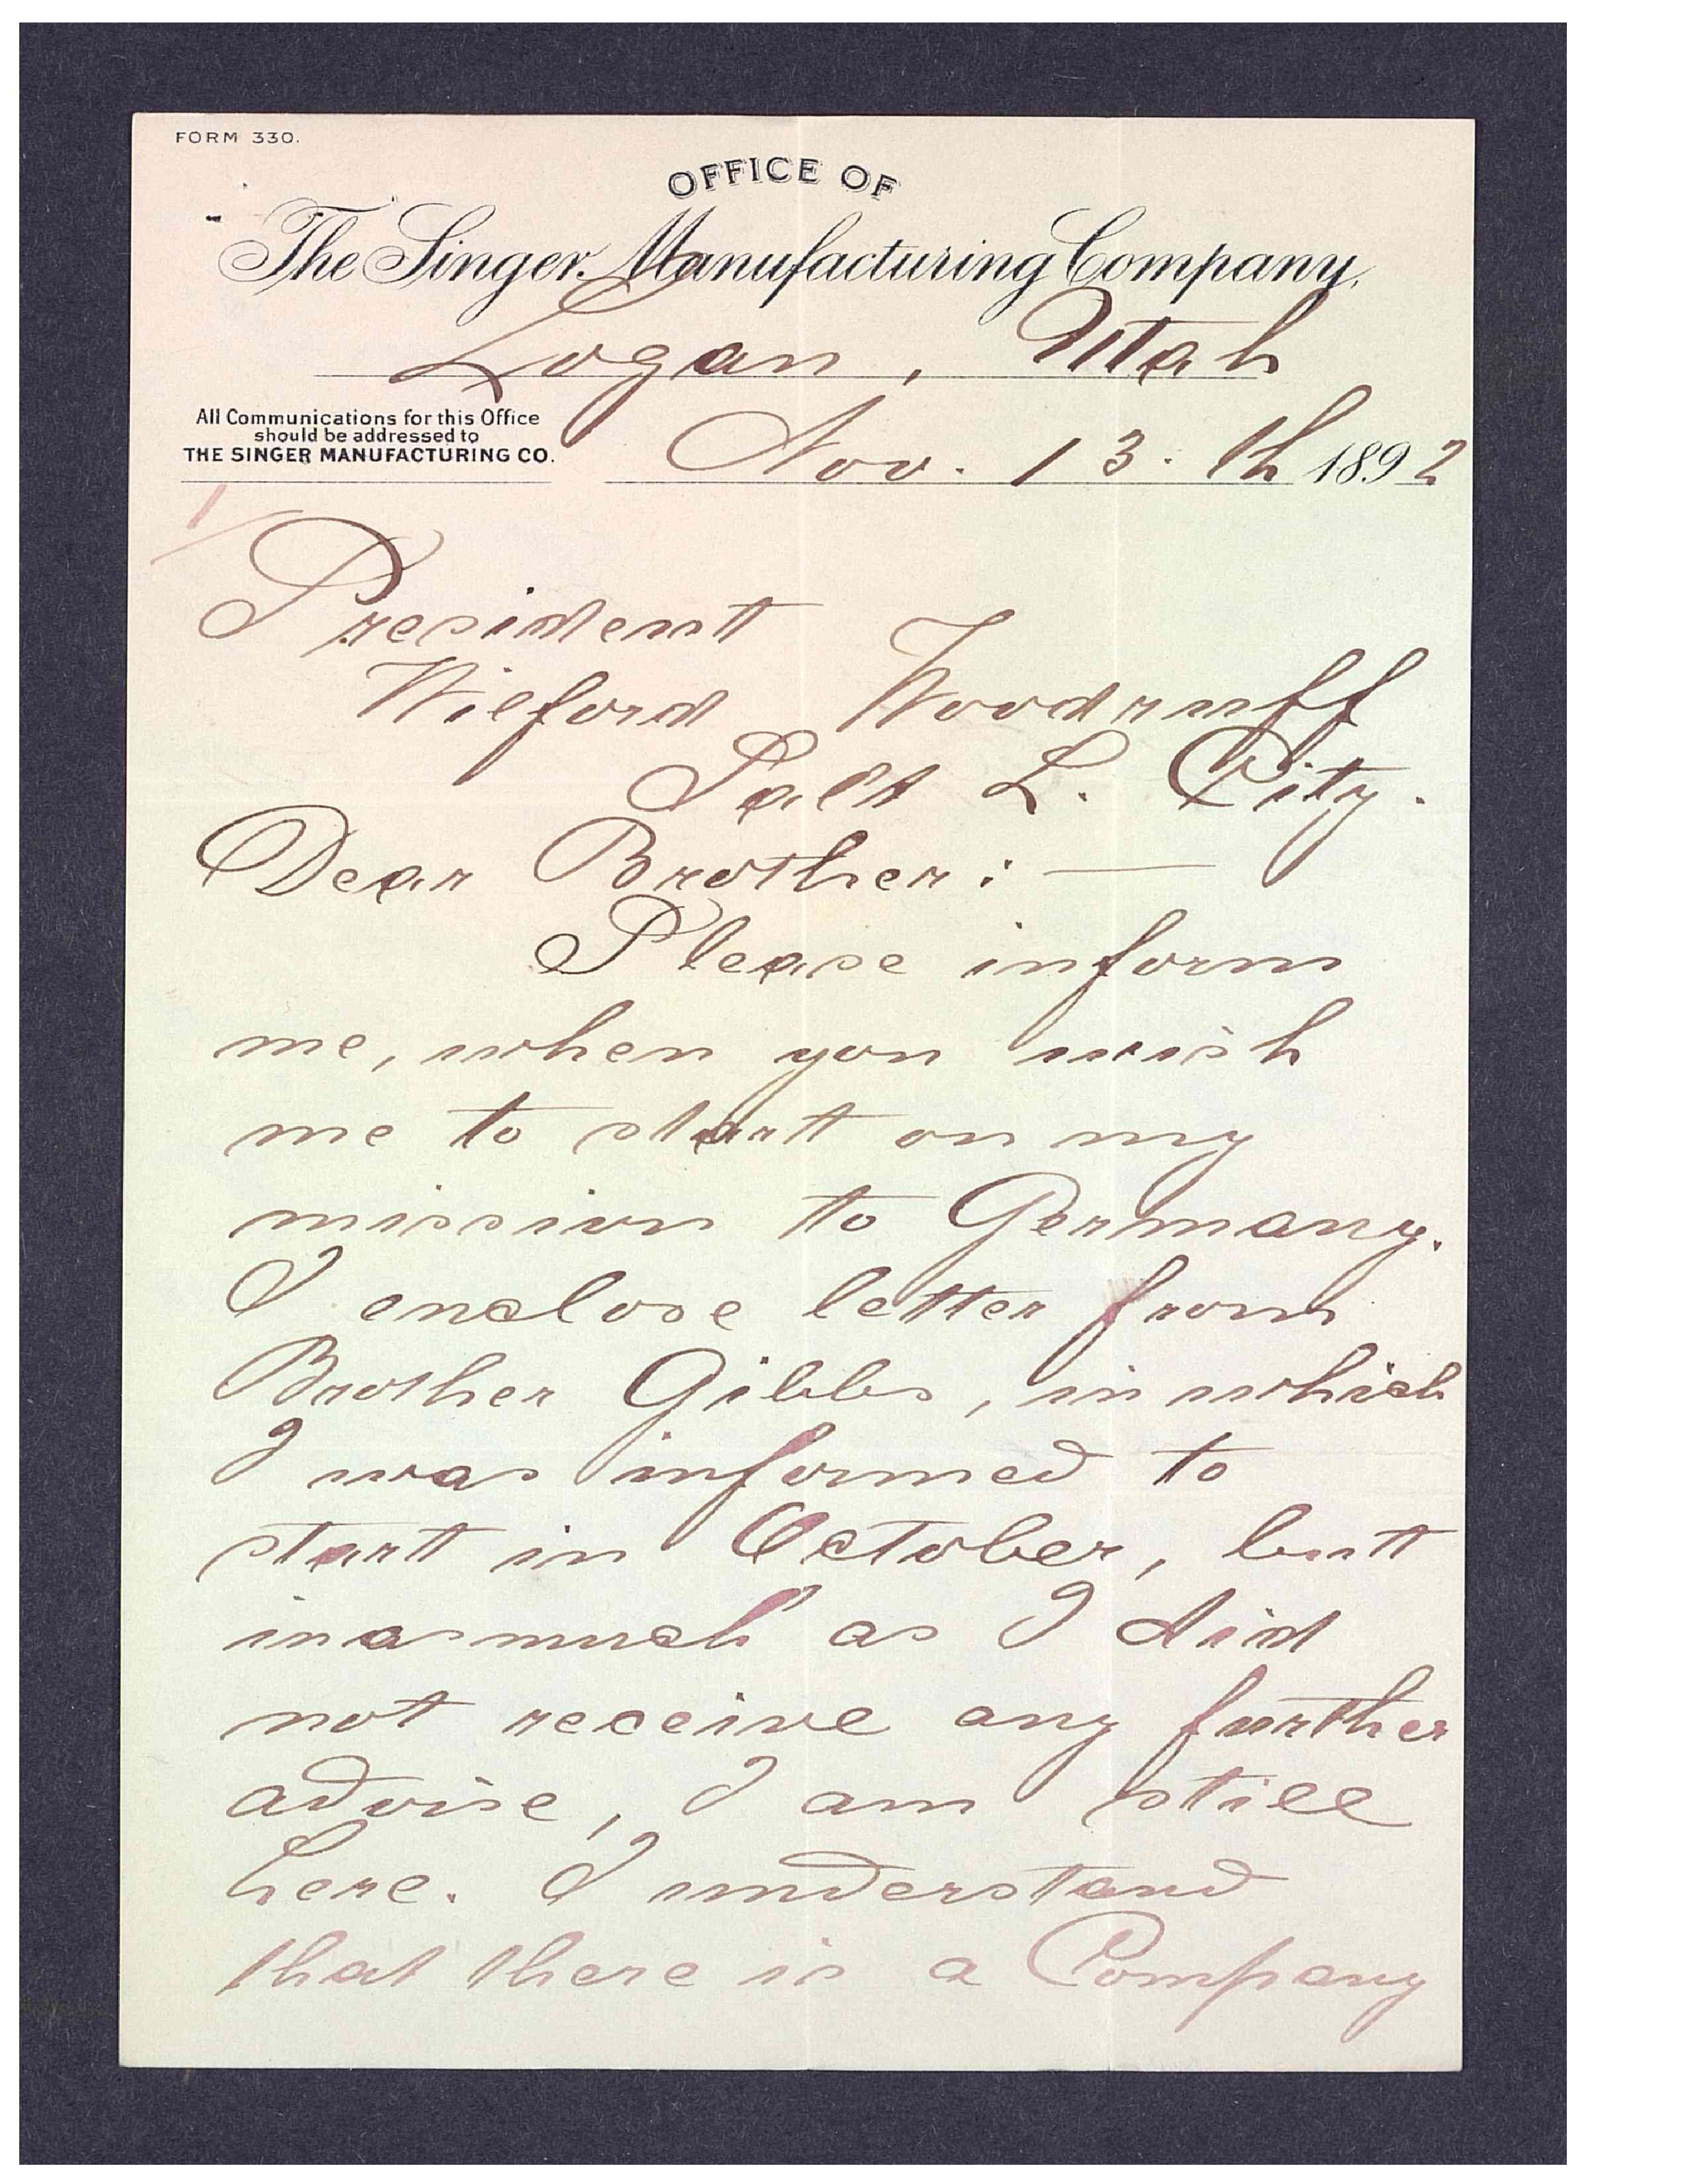 FORM 330.
OFFICE OF
The Singer Manufacturing Company,
Logan, Utah
All Communications for this Office
should be addressed to
THE SINGER MANUFACTURING CO.
Nov. 13. th 1892
1/
President
Wilford Woodruff
Salt L. City.
Dear Brother: —
Please inform
me, when you wish
me to start on my
mission to Germany.
I enclose letter from
Brother Gibbs, in which
I was informed to
start in October, butt
in as much as I did
not receive any further
advise, I am still
here. I understand
that there is a Company